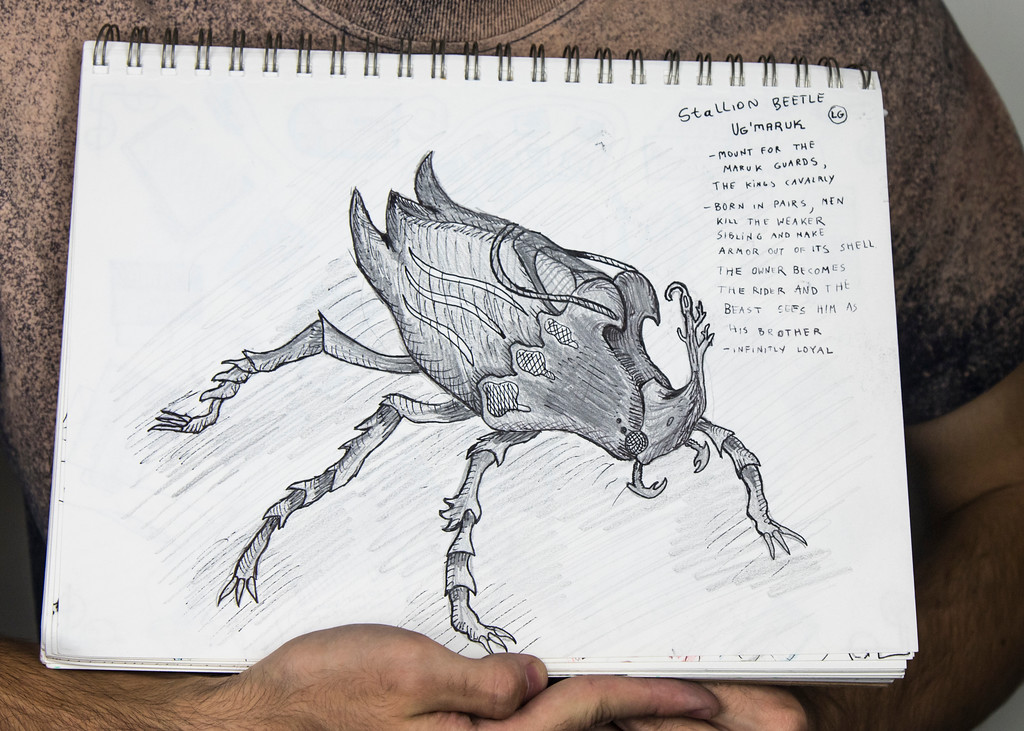 StaLLION BEETLE
LG
UG'MARUK
-MOUNT FOR THE
MARUK GUARDS,
THE KINGS CAVALRLY
-BORN IN PAIRS, MEN
KILL THE WEAKER
SIBLING AND MAKE
ARMOR OUT OF ITS SHELL
THE OWNER BECOMES
THE RIDER AND THE
BEAST SEES HIM AS
HIS BROTHER
-INFINITLY LOYAL